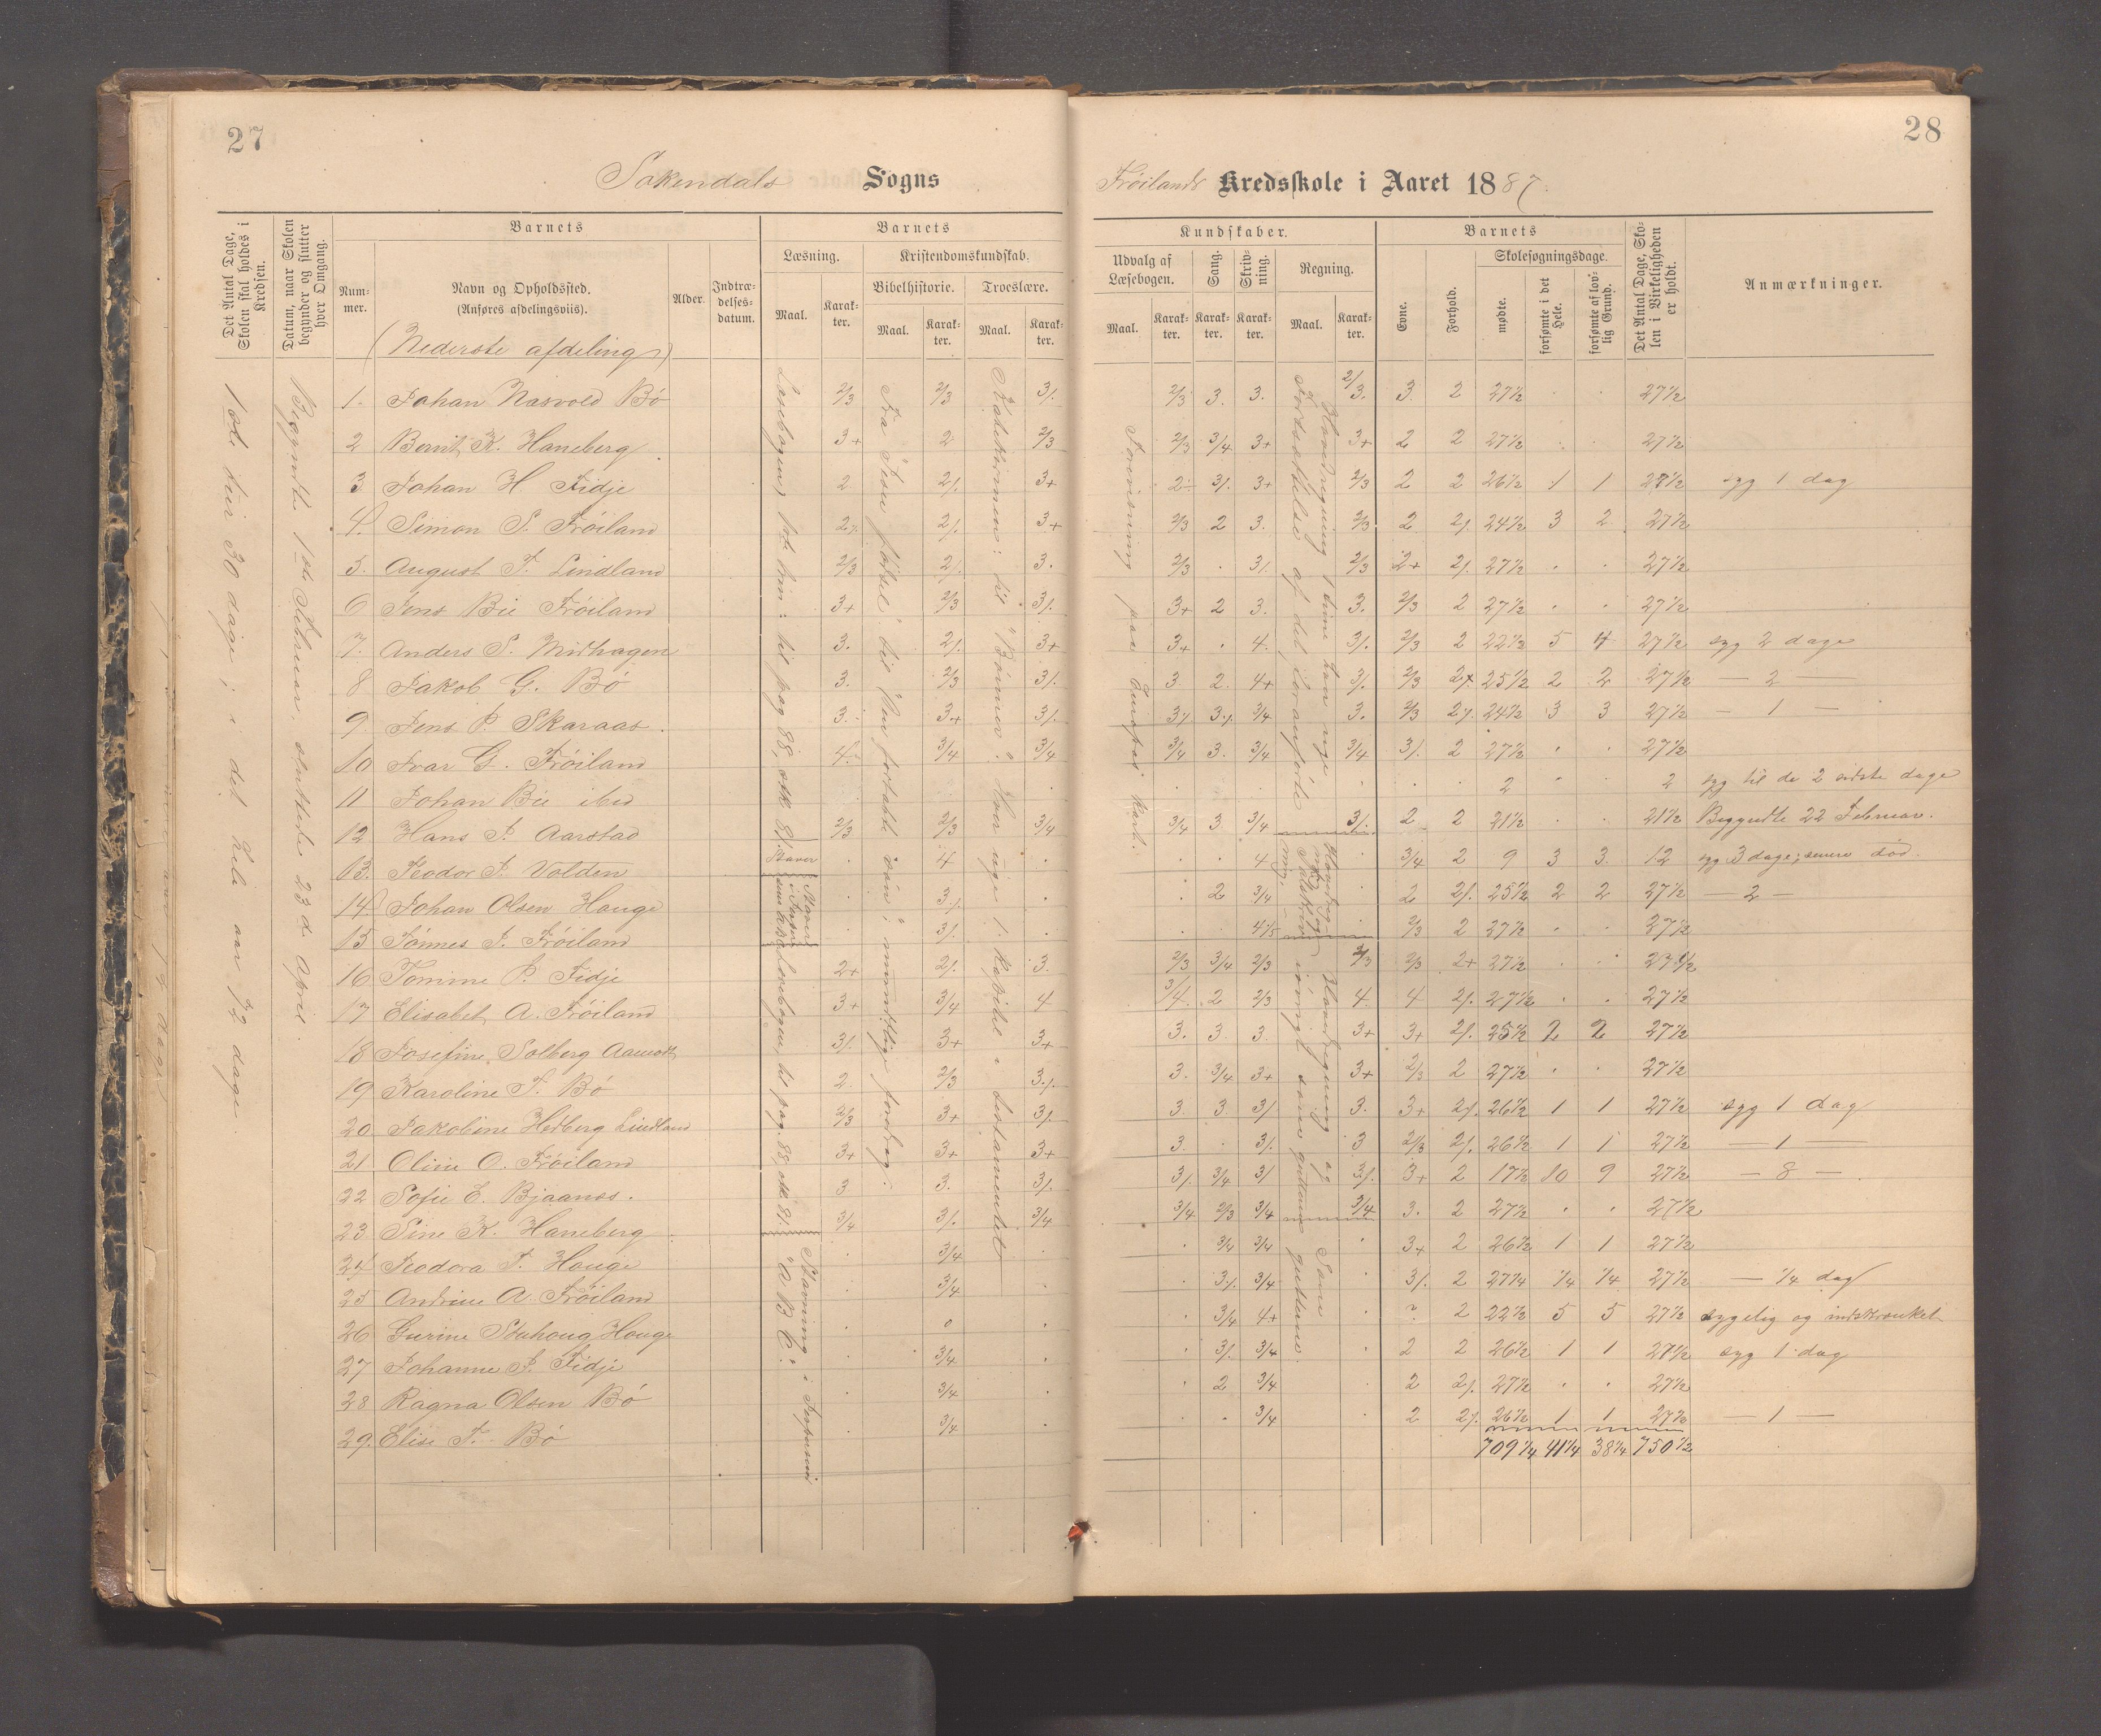 27
Sokendals Sogns
Det Antal Dage, Skolen skal holdes i Kredsen.
Datum, naar Skolen begynder og slutter hver Omgang.
Barnets
Nummer.
Navn og Opholdssted.
(Anføres afdelingsviis).
Alder.
Indtrædelsesdatum.
Barnets
Læsning.
Kristendomskundskab.
Bibelhistorie.
Troeslære.
Maal.
Karakter.
Maal.
Karakter.
Maal.
Karakter.
(Nederste afdeling)
1ste led 30 dage; i det hele aar 72 dage.
Begyndte 1ste Februar, sluttede 23d April.
1. Johan Nasvold Bø 2/3 2/3 3/.
2 Bernt K. Haneberg 3+ 2 2/3
3 Johan H. Fidje 2 2/. 3+
4. Simon S. Frøiland 2/. 2/. 3+
5. August T. Lindland 2/3 2/. 3.
6 Jens Bie Frøiland 3+ 2/3 3/.
7. Anders S. Midhagen 3. 2/. 3+
8 Jakob G. Bø 3. 2/3 3/.
9. Jens P. Skaraas 3. 3+ 3/.
10 Ivar G. Frøiland 4. 3/4 3/4
11 Johan Bie ibid
12 Hans P. Aarstad 2/3 2/3 3/4
13. Teodor T. Volden 4
14 Johan Olsen Hauge 3/.
15 Tønnes T. Frøiland 3/.
16 Tomine P. Fidje 2+ 2/. 3.
17 Elisabet A. Frøiland 3+ 3/4 4
18 Josefine Solberg Aamodt 3/. 3+ 3+
19 Karoline T. Bø 2 2/3 3/.
20 Jakobine Hedberg Lindland 2/3 3+ 3/.
21 Oline O. Frøiland 3+ 3+ 3+
22 Sofie E. Bjaanes. 3 3. 3/.
23 Sine K. Haneberg 3/4 3/. 3/4
24 Teodora T. Hauge 3/4
25 Andrine A. Frøiland 3/4
26 Gurine Stuhoug Hauge 0
27 Johanne P. Fidje 3/4
28 Ragna Olsen Bø 3/4
29. Elise T. Bø 3/4
28
Frøilands Kredsskole i Aaret 1887.
Kundskaber.
Udvalg af Læsebogen.
Sang.
Skrivning.
Regning.
Maal.
Karakter.
Karakter.
Karakter.
Maal.
Karakter.
Barnets
Evne.
Forhold.
Skolesøgningsdage.
mødte.
forsømte i det Hele.
forsømte af lovlig Grund.
Det Antal Dage, Skolen i Virkeligheden er holdt.
Anmærkninger.
Forevisning paa Europas kart.
2/3 3. 3. 2/3. 3. 2 27½ . . 27½
2/3 3/4 3+ 3+ 2 2 27½ . . 27½
2 3/. 3+ 2/3 2 2 26½ 1 1 27½ syg 1 dag
2/3 2 3. 2/3 2 2/. 24½ 3 2 27½
2/3 . 3/. 2/3 2+ 2/. 27½ . . 27½
3+ 2 3. 3. 2/3 2 27½ . . 27½
3+ . 4. 3/. 2/3 2 22½ 5 4 27½ syg 2 dage
3 2. 4+ 3/. 2/3 2/. 25½ 2 2 27½ — 2 —
3/. 3/. 3/4 3. 2/3 2/. 24½ 3 3 27½ — 1 —
3/4 3. 3/4 3/4 3/. 2 27½ . . 27½
2 . . 2 syg til de 2 sidste dage
3/4 3 3/4 3/. 2 2 21½ . . 21½ Begyndte 22 Februar.
4 3/4 2 9 3 3 12 syg 3 dage; senere død
2 3/4 2 2/. 25½ 2 2 27½ — 2 —
4/5 2/3 2 27½ . . 27½
2/3 3/4 2/3 2/3 2/3 2+ 27½ . . 27½
3/4 2 2/3 4 4 2/. 27½ . . 27½
3. 3 3 3+ 3+ 2/. 25½ 2 2 27½
3. 3/4 3+ 3+ 2/3 2 27½ . . 27½
3. 3 3/. 3. 3+ 2/. 26½ 1 1 27½ syg 1 dag
3 . 3/. 3 2/3 2/. 26½ 1 1 27½ — 1 —
3/. 3/4 3/ 3/. 3+ 2 17½ 10 9 27½ — 8 —
3/4 2/3 3/4 3/4 3. 2 27½ . . 27½
3/4 3/4 3+ 2 26½ 1 1 27½
3/. 3/4 3/. 2 27¼ ¼ ¼ 27½ — ¼ dag
3/4 4+ ? 2 22½ 5 5 27½ sygelig og indskrænket
3/. 3/4 2 2 26½ 1 1 27½ syg 1 dag
2 3/4 2 2/. 27½ . . 27½
. 3/4 2 2/. 26½ 1 1 27½ — 1 —
709¼ 41¼ 38¼ 750½